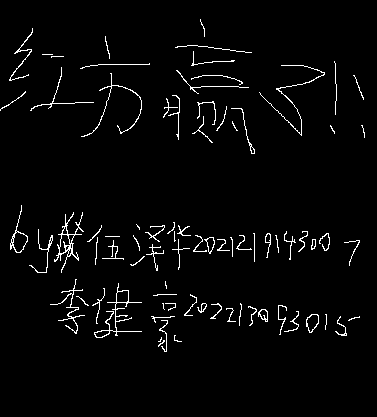 红方赢了!!
by 伍泽华2021219143007
李健豪202213093015